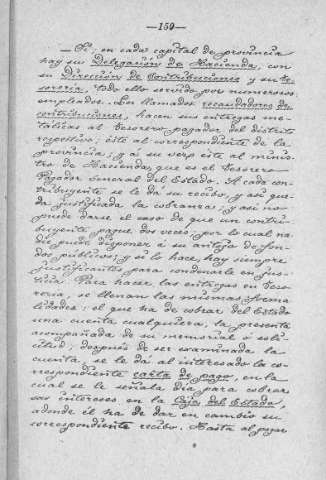 —159—
—Sí; en cada capital de provincia
hay su Delegación de Hacienda, con
su Dirección de Contribuciones y su te-
sorería, todo ello servido por numerosos
empleados. Los llamados recaudadores de
contribuciones, hacen sus entregas me-
tálicas al Tesorero pagador del distrito
respectivo; éste al correspondiente de la
provincia; y á su vez este al minis-
tro de Hacienda, que es el Tesorero
Pagador General del Estado. A cada con-
tribuyente se le dá su recibo, y así que-
da justificada la cobranza; y así no
puede darse el caso de que un contri-
buyente pague dos veces, por lo cual na-
die puede disponer á su antojo de fon-
dos públicos; y si lo hace, hay siempre
justificantes para condenarle en jus-
ticia. Para hacer las entregas en Teso-
rería, se llenan las mismas forma-
lidades: el que ha de cobrar del Estado
una cuenta cualquiera, la presenta
acompañada de su memorial ó soli-
citud; después de ser examinada la
cuenta, se le dá al interesado la co-
rrespondiente carta de pago, en la
cual se le señala día para cobrar
sus intereses en la Caja del Estado,
adonde él ha de dar en cambio su
correspondiente recibo. Hasta al pagar